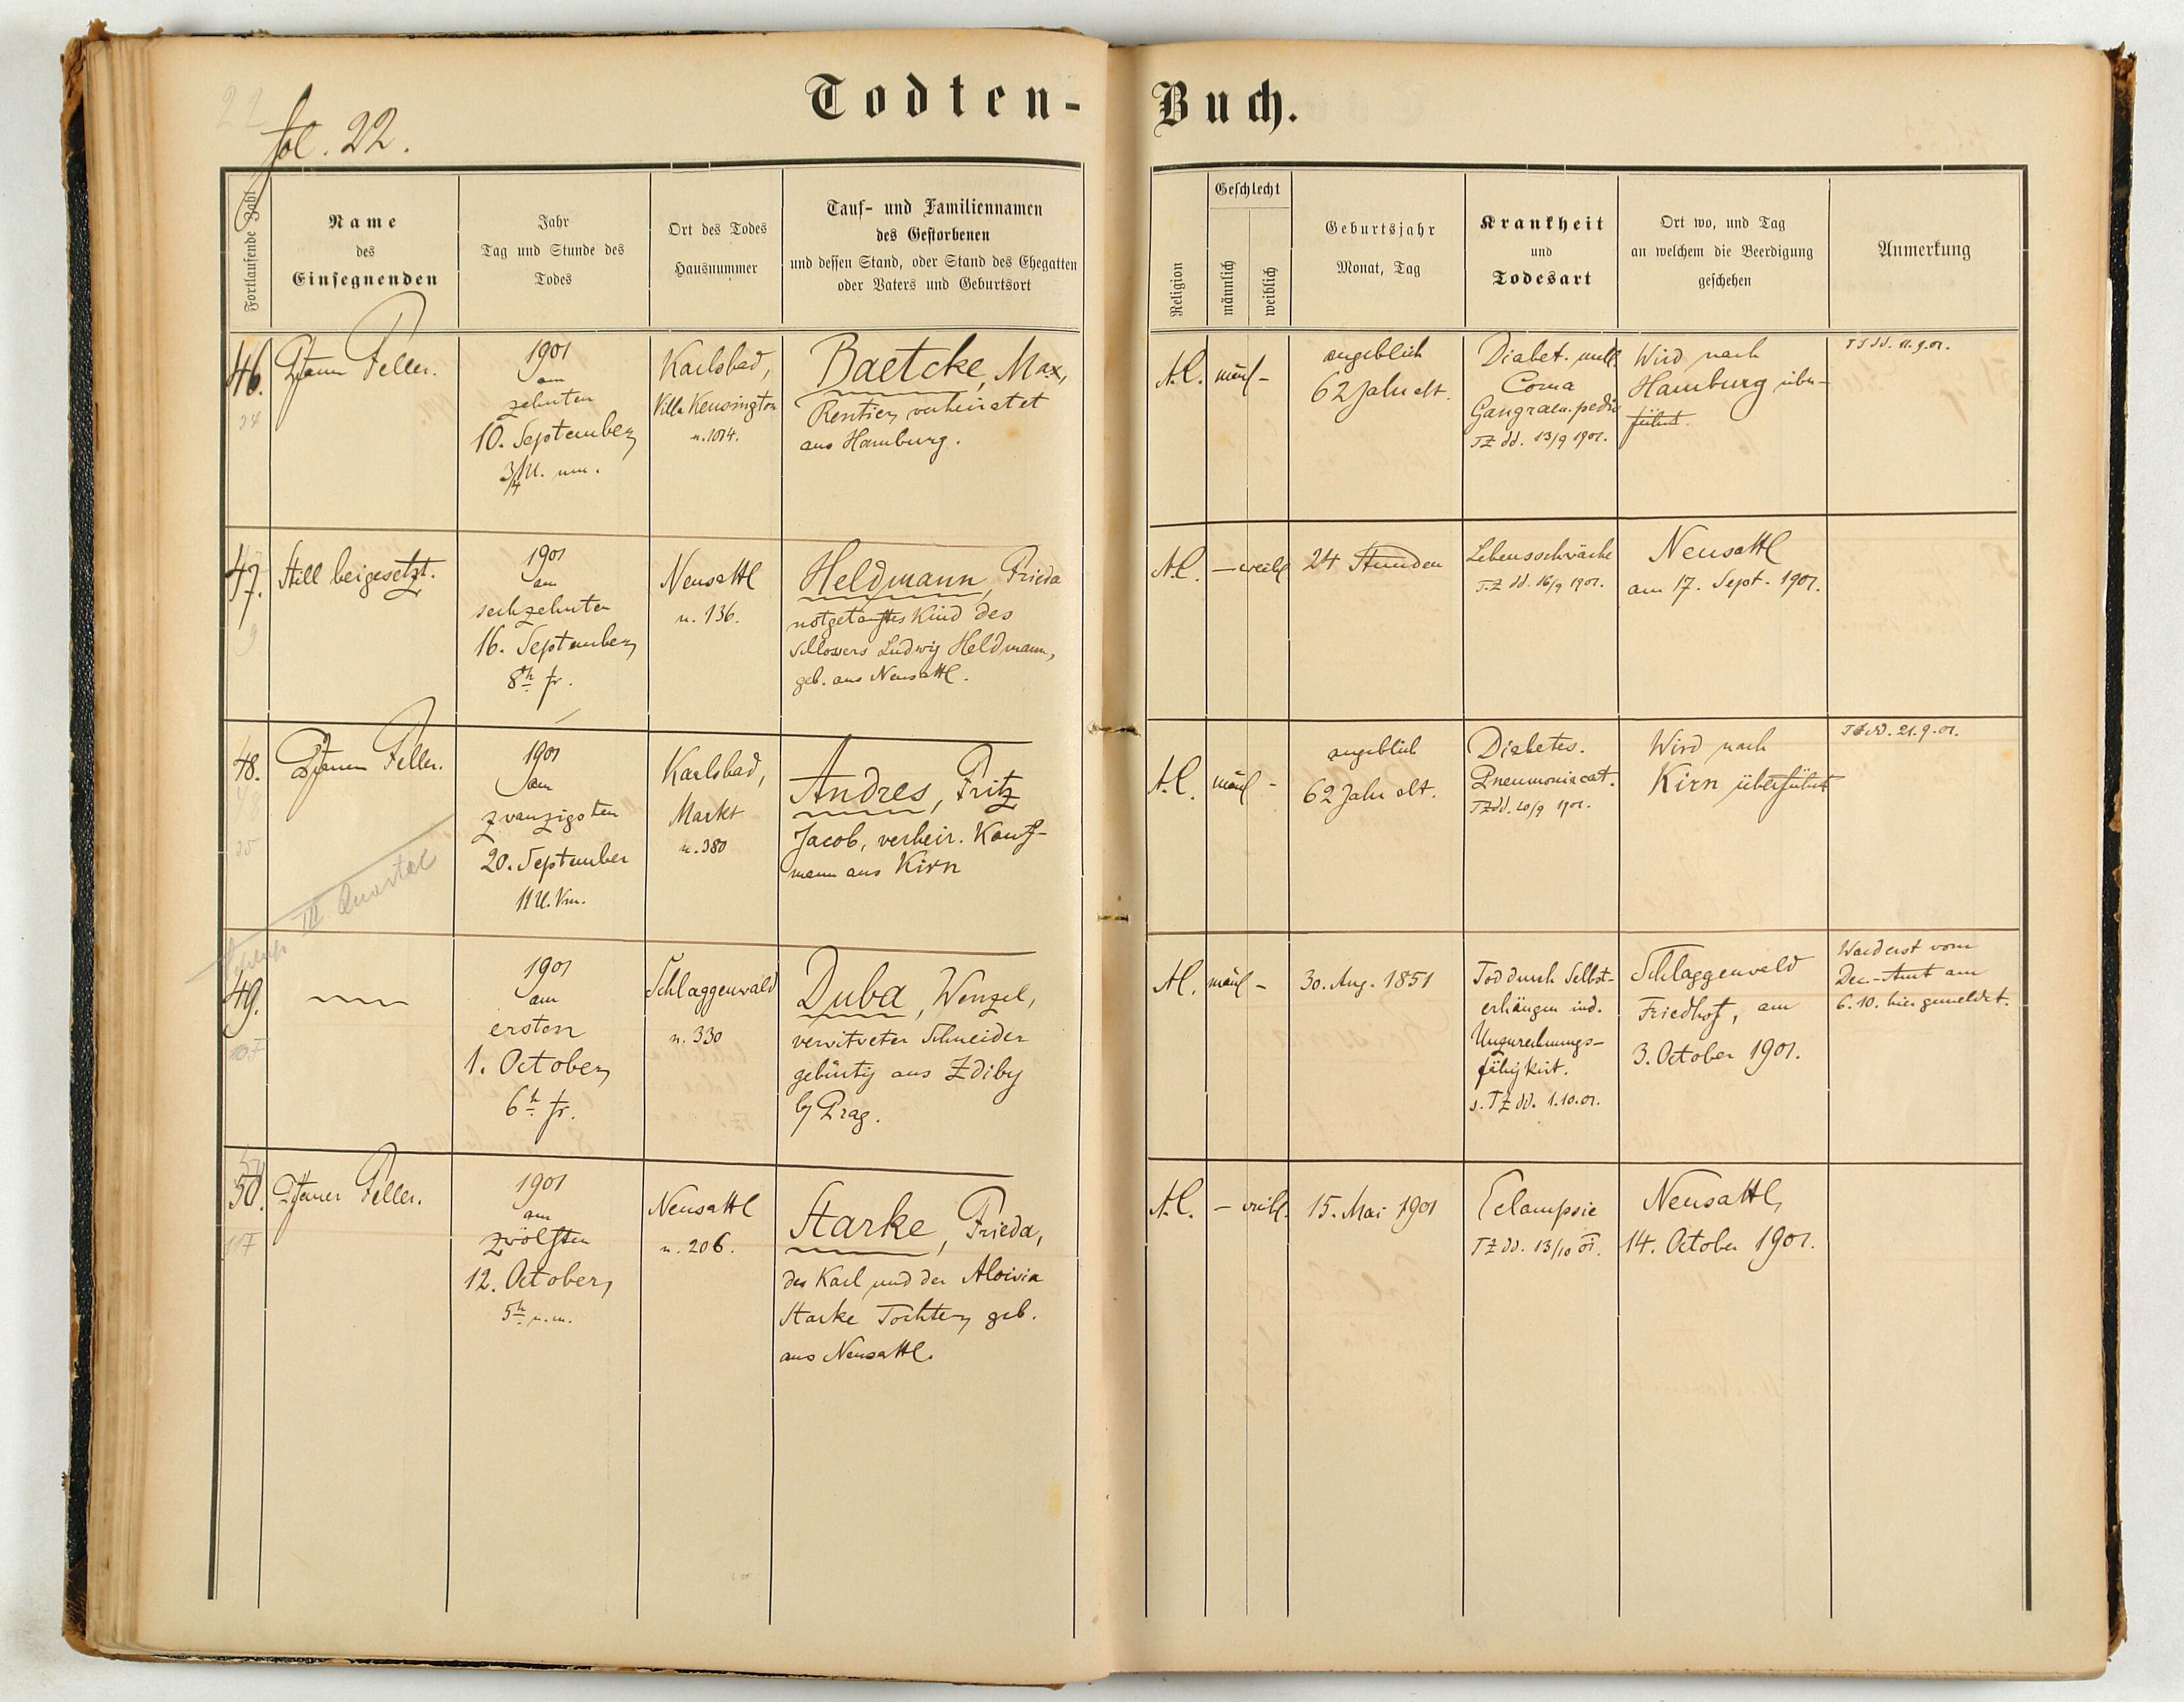 fol. 22.
Todten-Buch.
Fortlaufende Zahl
Name
des
Einsegnenden
Jahr
Tag und Stunde des
Todes
Ort des Todes
Hausnummer
Tauf- und Familiennamen
des Gestorbenen
und dessen Stand, oder Stand des Ehegatten
oder Vaters und Geburtsort
Religion
Geschlecht
männlich
weiblich
Geburtsjahr
Monat, Tag
Krankheit
und
Todesart
Ort wo, und Tag
an welchem die Beerdigung
geschehen
Anmerkung
46.
Feller.
1901
am
zehnten
10. September
3/4 U. nm.
Karlsbad,
Villa Kensington
n. 1014.
Baetcke, Max,
Rentier, verheiratet
aus Hamburg.
A.C.
männl -
angeblich
62 Jahr alt.
Diabet. mell.
Coma
Gangraen. pedis
TZ dd. 13/9 1901.
Wird nach
Hamburg über-
führt.
11.9.01.
47.
Still beigesetzt.
1901
am
sechzehnten
16. September
8h fr.
Neusattl
n. 136.
Heldmann, Frieda
notgetauftes Kind des
Schlossers Ludwig Heldmann,
geb. aus Neusattl.
A.C.
- weibl
24 Stunden
Lebensschwäche
T.Z dd. 16/9 1901.
Neusattl
am 17. Sept. 1901.
48.
Feller.
1901
am
zwanzigsten
20. September
11 U. Vm.
Karlsbad,
Markt
n. 380
Andres, Fritz
Jacob, verheir. Kauf-
mann aus Kirn
A.C.
männl -
angeblich
62 Jahr alt.
Diabetes.
Pneumonia cat.
TZ dd. 20/9 1901.
Wird nach
Kirn überführt
21.9.01.
III Quartal
49.
1901
am
ersten
1. October,
6h fr.
Schlaggenwald
n. 330
Duba, Wenzel,
verwitweter Schneider
gebürtig aus Zdiby
b/ Prag.
A.C.
männl -
30. Aug. 1851
Tod durch Selbst-
erhängen ind.
Unzurechnungs-
fähigkeit.
s. TZ dd. 1.10.01.
Schlaggenwald
Friedhof, am
3. October 1901.
Ward erst vom
Dec.-Amt am
6.10. hier gemeldet.
50.
Pfarrer Feller.
1901
am
zwölften
12. October,
5h n.m.
Neusattl
n. 206.
Starke, Frieda,
des Karl und der Aloisia
Starke Tochter, geb.
aus Neusattl.
A.C.
- weibl.
15. Mai 1901
Eclampsie
TZ dd. 13/10 01.
Neusattl,
14. October 1901.